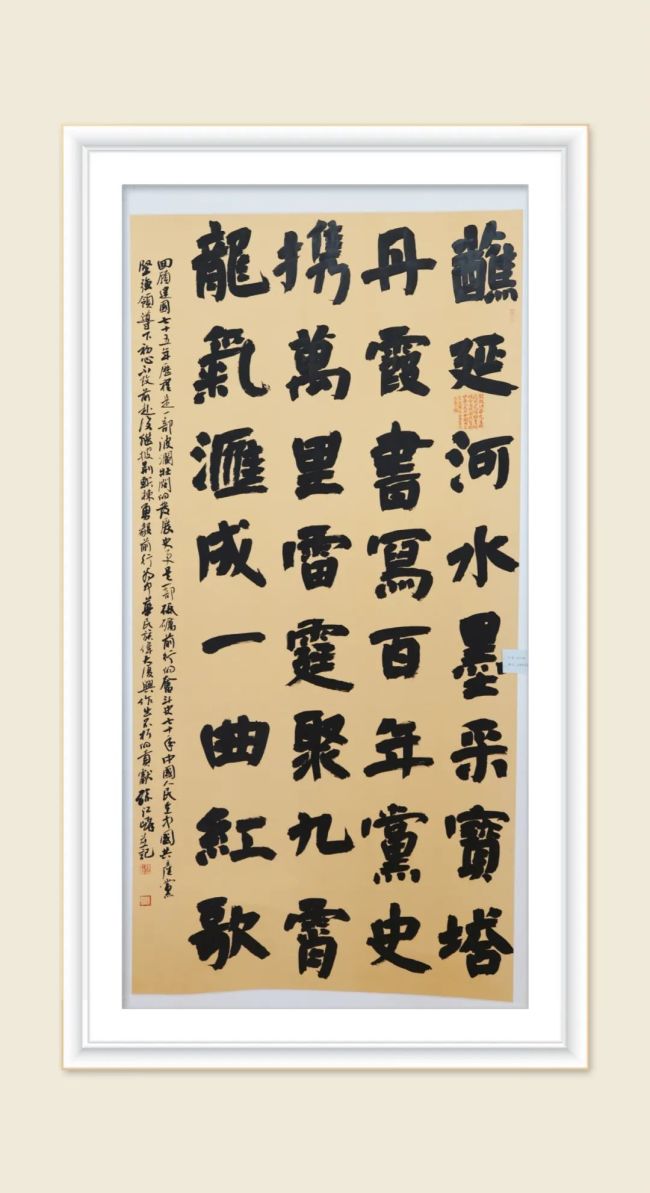 蘸延河水墨采寶塔
丹霞書寫百年黨史
携萬里雷霆聚九霄
龍氣滙成一曲紅歌
回顧建國七十五年歷程是一部波瀾壯闊的發展史更是一部砥礪前行的奮斗史七十年中國人民在中國共產黨
堅強領導下初心不改前赴後繼披荊斬棘勇毅前行為中華民族偉大復興作出不朽的貢獻 江並記